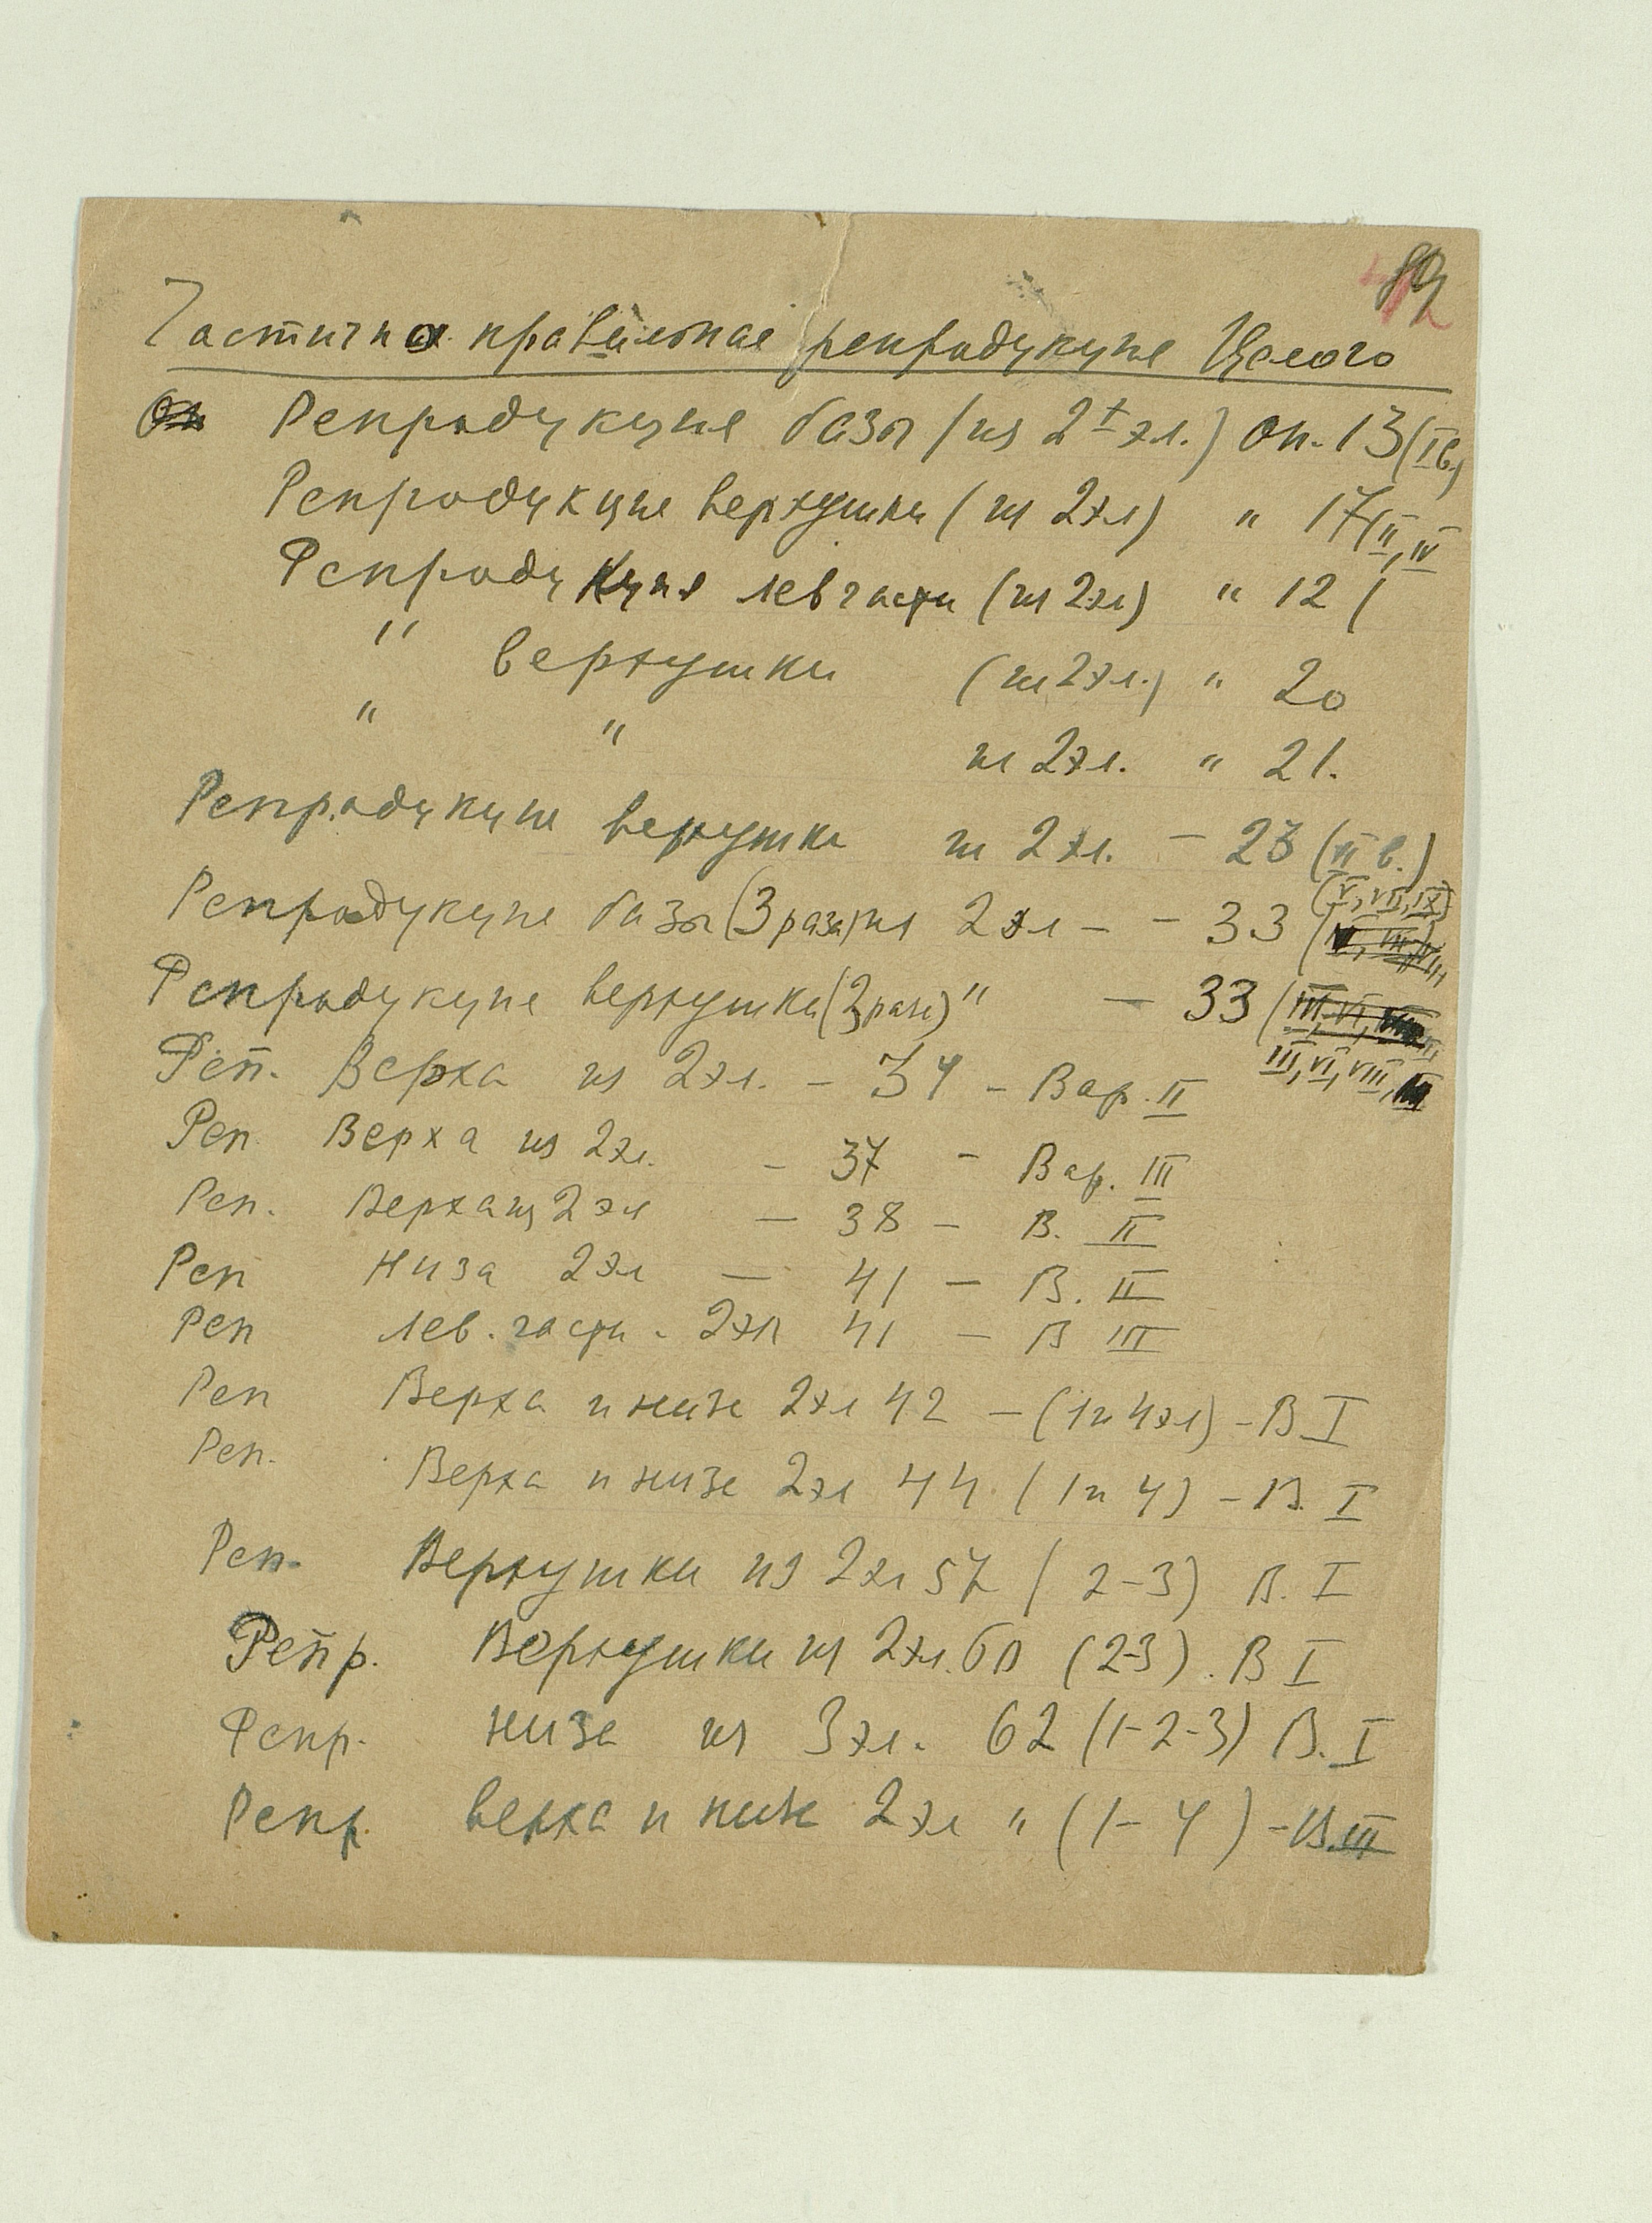 89
Частично правильная репродукция Целого
Репродукция базы (из 2х эл.) Оп. 13 (I в.)
Репродукция верхушки (из 2 эл) " 17 (II, IV
Репродукция лев части (из 2 эл) " 12 (
" верхушки (из 2 эл.) " 20
" " из 2 эл. " 21.
Репродукция верхушки из 2 эл. - 23 (II в.)
Репродукция базы (3 раза) из 2 эл - - 33 (V, VII, IX)
Репродукция верхушки (3 раза) " - 33 (
III, VI, VIII,
Реп. Верха из 2 эл. - 34 - Вар. II
Реп. Верха из 2 эл. - 37 - Вар. III
Реп. Верха из 2 эл - 38 - В. II
Реп Низа 2 эл - 41 - В. II
Реп Лев. части - 2 эл 41 - В III
Реп Верха и низа 2 эл 42 - (1 и 4 эл) - В I
Реп. Верха и низа 2 эл 44 (1 и 4) - В. I
Реп. Верхушки из 2 эл 57 (2-3) В. I
Репр. Верхушки из 2 эл. 60 (2-3). В I
Репр. низа из 3 эл. 62 (1-2-3) В. I
Репр. верха и низа 2 эл " (1-4) - В. III